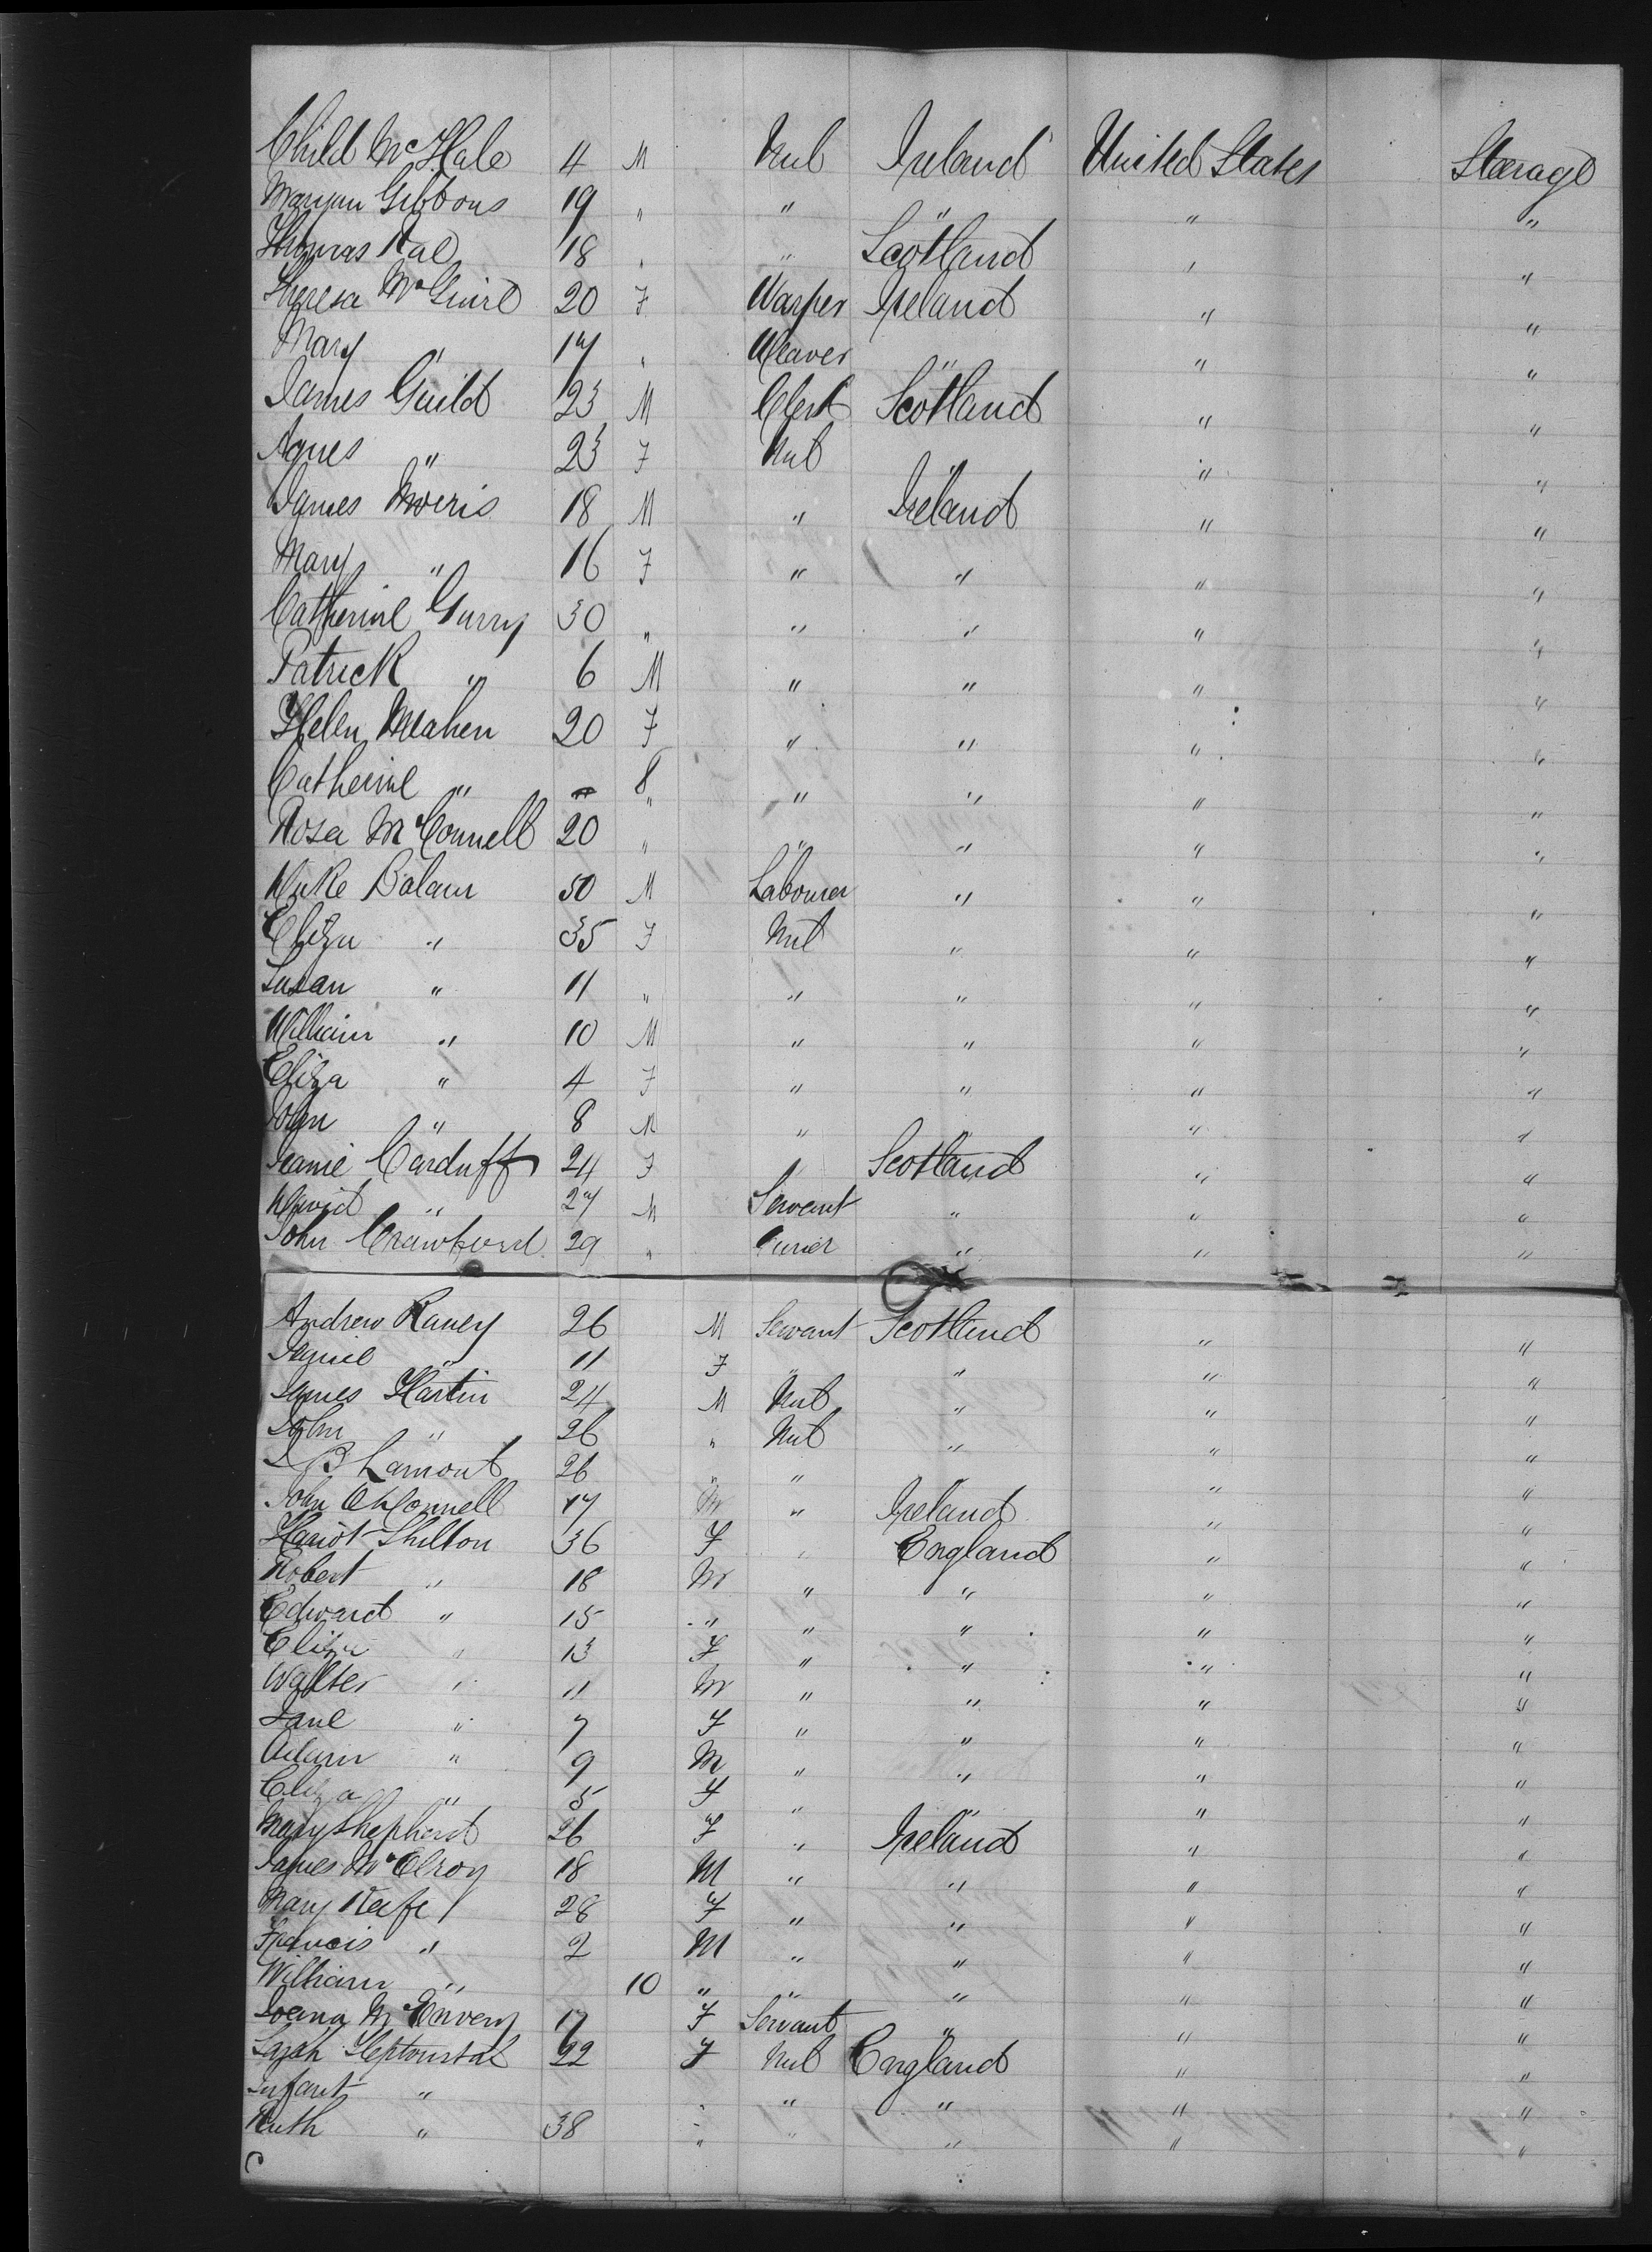 Child McHale 4 M Nil Ireland United States Steerage
Maryann Gibbons 19 " " " " "
Thomas Rae 18 " " Scotland " "
Theresa McGuire 20 F Warper Ireland " "
Mary " 17 " Weaver " " "
James Guild 23 M Clerk Scotland " "
Agnes " 23 F Nil " " "
James Morris 18 M " Ireland " "
Mary " 16 F " " " "
Catherine Gurry 30 " " " " "
Patrick " 6 M " " " "
Helen Meahen 20 F " " " "
Catherine " 8 " " " " "
Rosa McConnell 20 " " " " "
Mike Balam 50 M Labourer " " "
Eliza " 35 F Nil " " "
Susan " 11 " " " " "
William " 10 M " " " "
Eliza " 4 F " " " "
John " 8 M " " " "
Jeanie Carduff 24 F " Scotland " "
David " 27 M Servant " " "
John Crawford 29 " " " "
Andrew Raney 26 M Servant Scotland " "
" 11 F " " " "
James Hartin 24 M Nil " " "
John " 26 " Nil " " "
B Lamont 26 " " " " "
John O'Connell 17 M " Ireland " "
Hariot Shilton 36 F " England " "
Robert " 18 M " " " "
Edward " 15 " " " " "
Eliza " 13 F " " " "
Walter " 11 M " " " "
Jane " 7 F " " " "
Adam " 9 M " " " "
Eliza " 5 F " " " "
Mary Shepherd 26 F " Ireland " "
James McElroy 18 M " " " "
Mary Keefe 28 F " " " "
Francis " 2 M " " " "
William " 10 " " " " "
17 F Servant " " "
Sarah Heptonstal 22 F Nil England " "
Infant " " " " " "
Ruth " 38 " " " " "